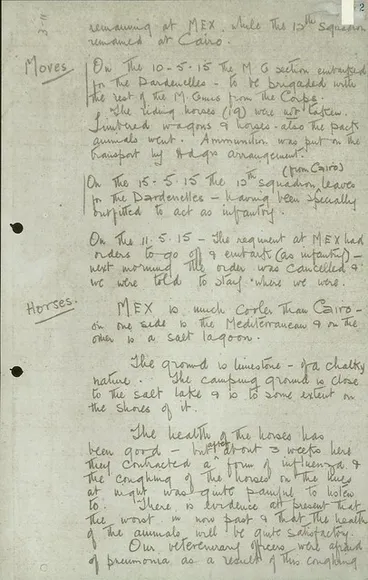 2
remaining at MEX, while the 12th Squadron
remained at Cairo.
Moves.
On the 10-5-15 the M G section embarked
for the Dardenelles - to be brigaded with
the rest of the M Guns from the Corps.
The riding horses (19) were not taken.
Limbered wagons & horses - also the pack
animals went. Ammunition was put on the
transport by Hdqrs arrangement.
(from Cairo)
On the 15.5.15 the 12th squadron leaves
for the Dardenelles - having been specially
outfitted to act as infantry.
On the 11.5.15 - The regiment at MEX had
orders to go off & embark (as infantry) -
next morning the order was cancelled &
we were told to stay where we were.
Horses.
MEX is much cooler than Cairo -
on one side is the Mediterranean & on the
other is a salt lagoon.
The ground is limestone - of a chalky
nature. The camping ground is close
to the salt lake & is to some extent on
the shores of it.
The health of the horses has
been good - but after about 3 weeks here
they contracted a form of influenza &
the coughing of the horses on the lines
at night was quite painful to listen
to. There is evidence at present that
the worst is now past & that the health
of the animals will be quite satisfactory.
Our veterenary officers were afraid
of pneumonia as a result of this coughing